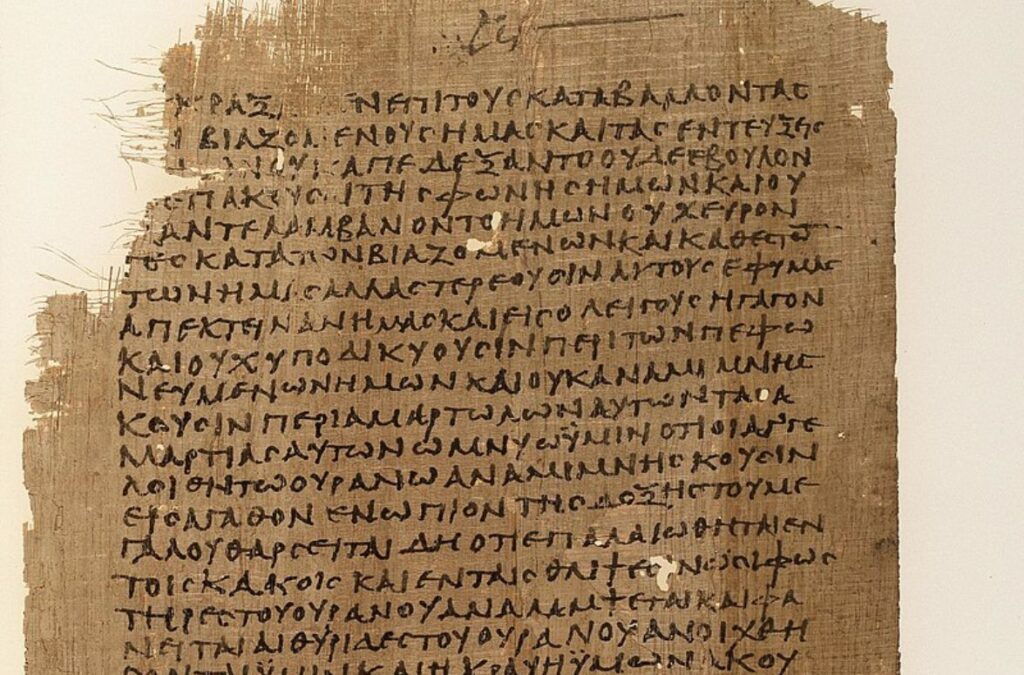 ΚΡΑΞ ΝΕΠΙΤΟΥϹΚΑΤΑΒΑΛΛΟΝΤΑϹ
ΒΙΑΖΟΜΕΝΟΥϹΗΜΑϹΚΑΙΤΑϹΕΝΤΕΥΞΕΙϹ
ΝΟΥΚΑΠΕΔΕΞΑΝΤΟΟΥΔΕΕΒΟΥΛΟΝ
ΕΠΑΚΟΥϹΑΙΤΗϹΦΩΝΗϹΗΜΩΝΚΑΙΟΥ
ΑΝΤΕΛΑΜΒΑΝΟΝΤΟΗΜΩΝΟΥΧΕΥΡΟΝ
ΤΕϹΚΑΤΑΤΩΝΒΙΑΖΟΜΕΝΩΝΚΑΙΚΑΘΕϹΤΩ
ΤΩΝΗΜΑϹΑΛΛΑϹΤΕΡΕΟΥϹΙΝΑΥΤΟΥϹΕΦΥΜΑϹ
ΑΠΕΚΤΕΙΝΑΝΗΜΑϹΚΑΙΕΙϹΟΛΕΙΓΟΥϹΗΓΑΓΟΝ
ΚΑΙΟΥΧΥΠΟΔΙΚΥΟΥϹΙΝΠΕΡΙΤΩΝΠΕΦΩ
ΝΕΥΜΕΝΩΝΗΜΩΝΚΑΙΟΥΚΑΝΑΜΙΜΝΗϹ
ΚΟΥϹΙΝΠΕΡΙΑΜΑΡΤΩΛΩΝΑΥΤΩΝΤΑϹΑ
ΜΑΡΤΙΑϹΑΥΤΩΝΩΜΝΥΩΫΜΙΝΟΤΙΟΙΑΓΓΕ
ΛΟΙΕΝΤΩΟΥΡΑΝΩΑΝΑΜΙΜΝΗϹΚΟΥϹΙΝ
ΕΙϹΑΓΑΘΟΝΕΝΩΠΙΟΝΤΗϹΔΟΞΗϹΤΟΥΜΕ
ΓΑΛΟΥΘΑΡϹΕΙΤΑΙΔΗΟΤΙΕΠΑΛΑΙΩΘΗΤΑΙΕΝ
ΤΟΙϹΚΑΚΟΙϹΚΑΙΕΝΤΑΙϹΘΛΙΨΕϹΙΝΩϹΕΙΦΩϹ
ΤΗΡΕϹΤΟΥΟΥΡΑΝΟΥΑΝΑΛΑΜΨΕΤΑΙΚΑΙΦΑ
ΝΕΙΤΑΙΑΙΘΥΡΙΔΕϹΤΟΥΟΥΡΑΝΟΥΑΝΟΙΧΘΗ
ϹΟΝΤΑΙΫΜΙΝΚΑΙΗΚΡΑΥΓΗΫΜΩΝΑΚΟΥ